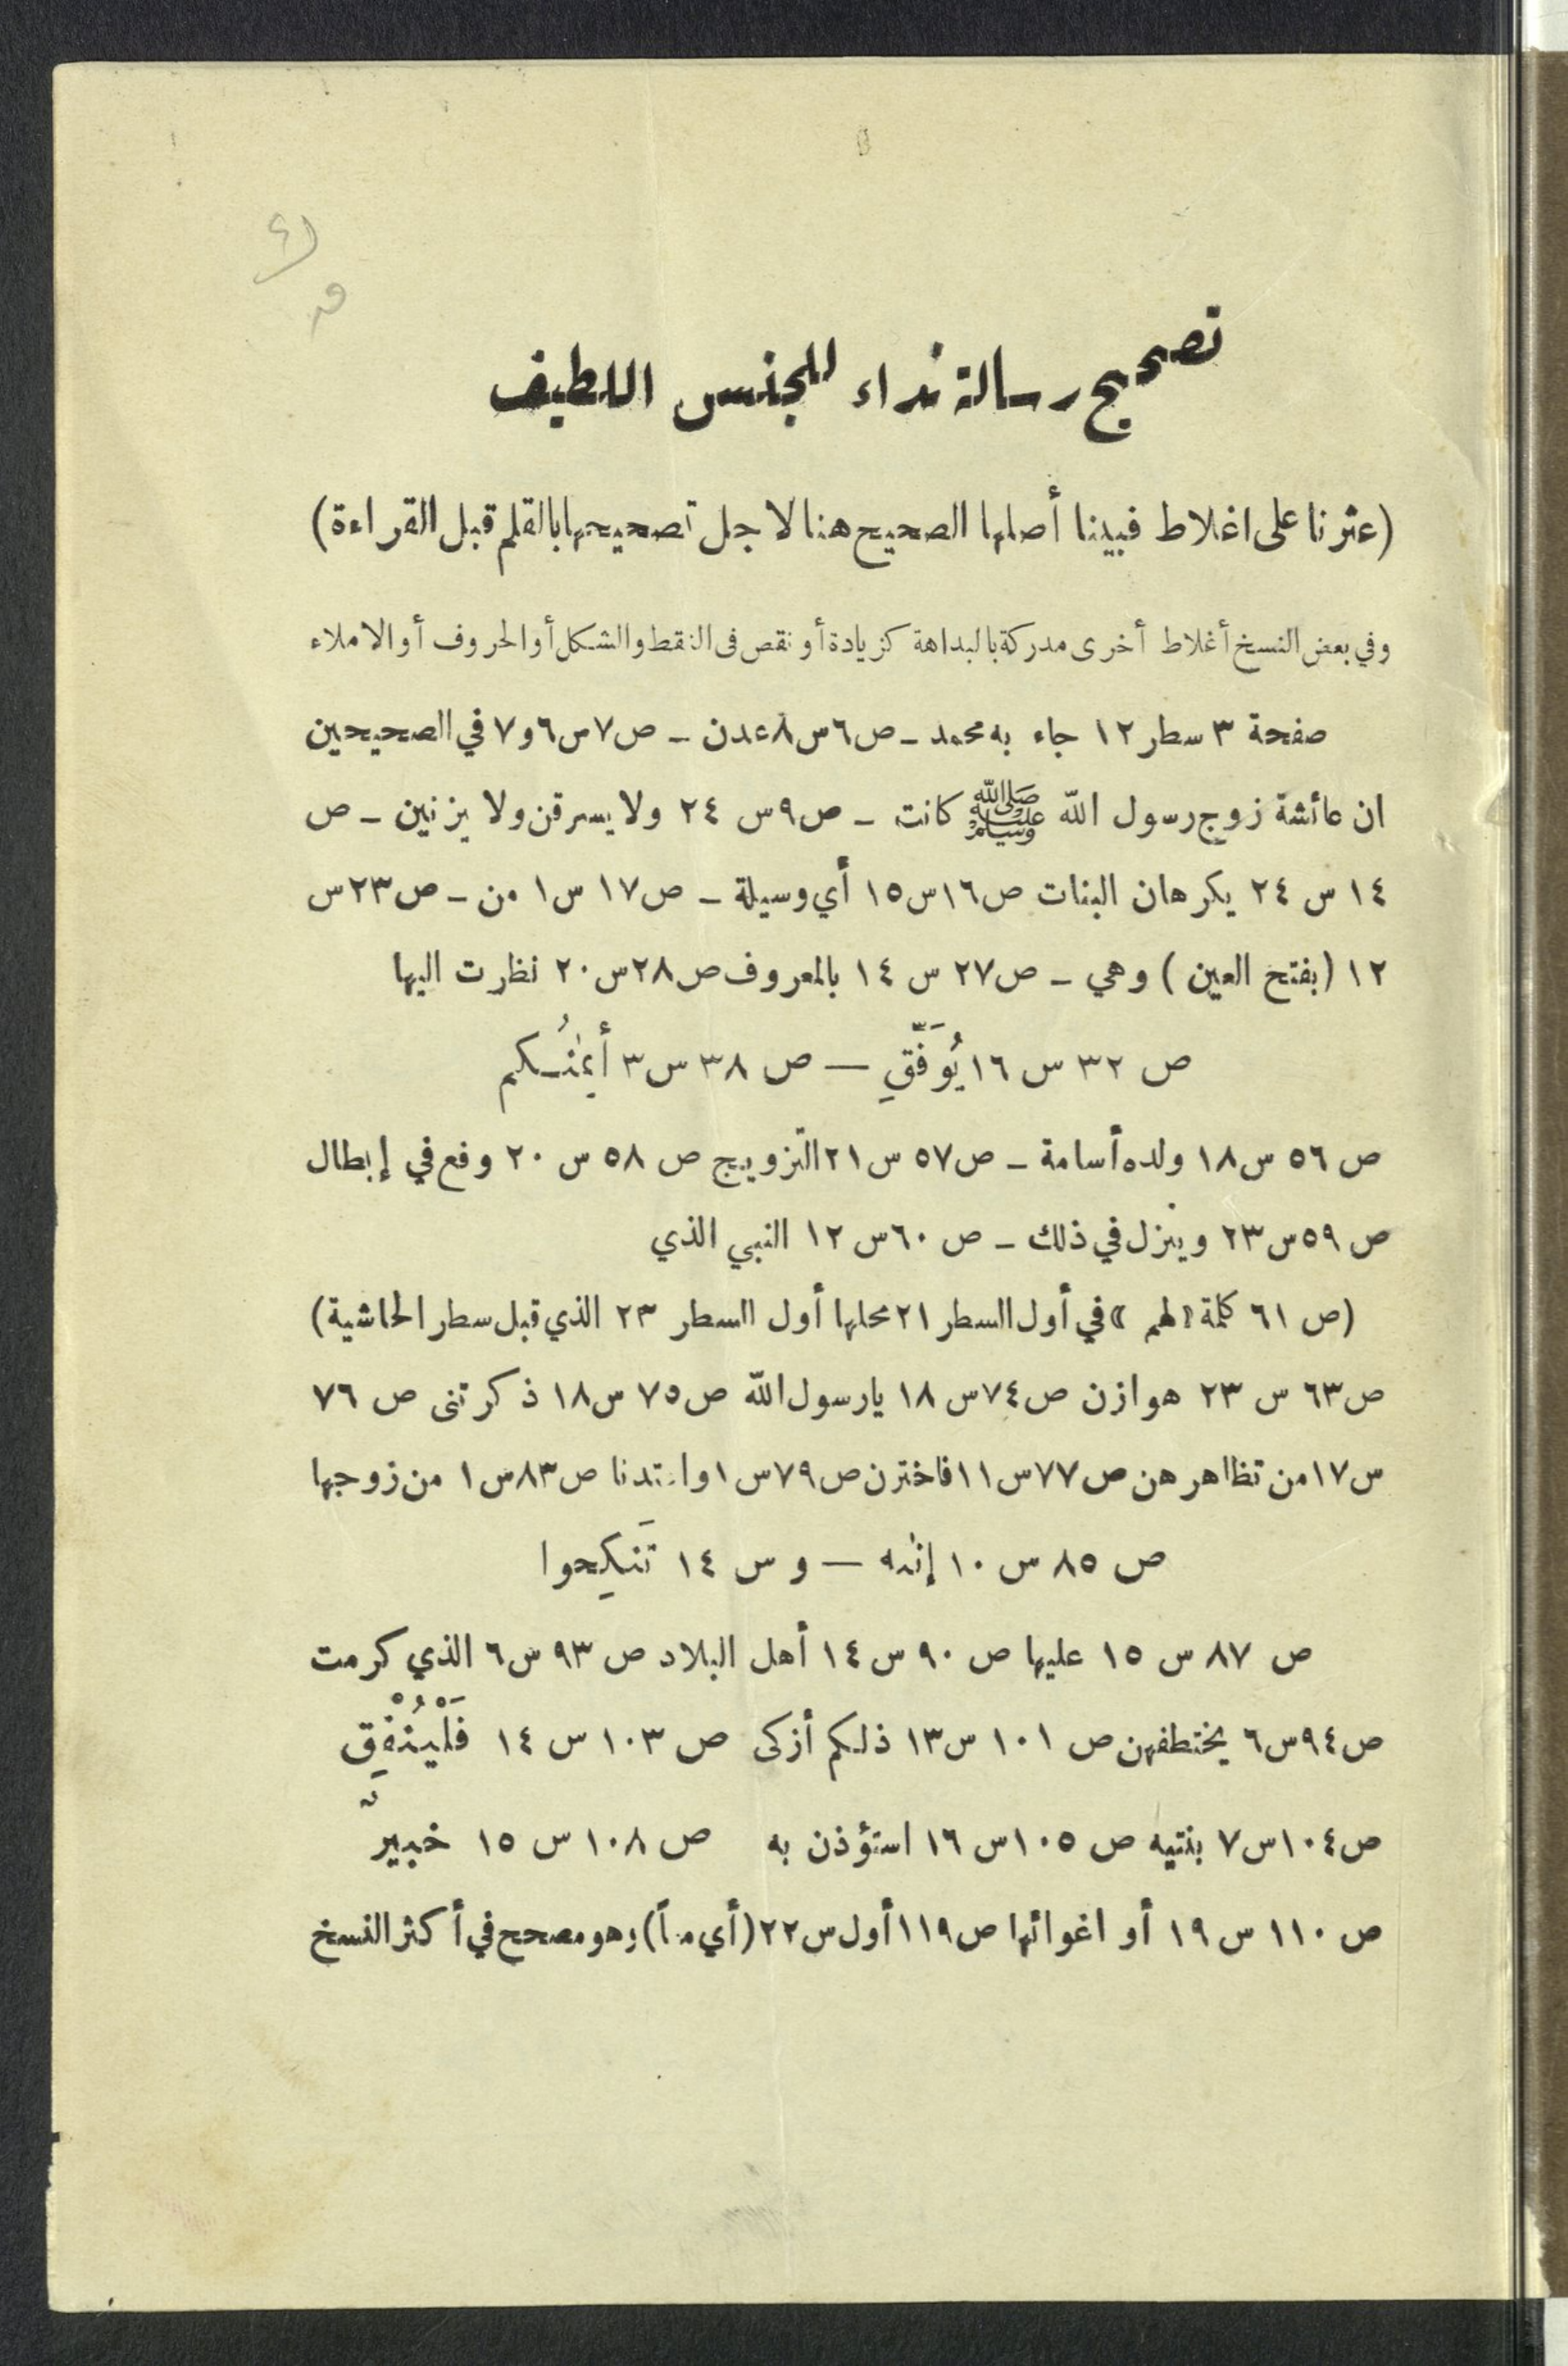 تصحيح رسالة نداء للجنس اللطيف
(عثرنا على اغلاط فبينا أصلها الصحيح هنا لاجل تصحيحها بالقلم قبل القراءة)
وفي بعض النسخ أغلاط أخرى مدركة بالبداهة كزيادة أو نقص فى النقط والشكل أو الحروف أو الاملاء
صفحة ٣ سطر ١٢ جاء به محمد ـ ص٦ س٨ عدن ـ ص٧ س٦و٧ في الصحيحين
ان عائشة زوج رسول الله ﷺ كانت ـ ص٩ س ٢٤ ولا يسرقن ولا يزنين ـ ص
١٤ س ٢٤ يكرهان البنات ص١٦ س١٥ أي وسيلة ـ ص١٧ س١ من ـ ص٢٣ س
١٢ (بفتح العين) وهي ـ ص٢٧ س ١٤ بالمعروف ص٢٨ س٢٠ نظرت اليها
ص ٣٢ س ١٦ يُوَفَّقِ — ص ٣٨ س ٣ أيمٰنُـكم
ص ٥٦ س١٨ ولده أسامة ـ ص٥٧ س٢١ التزويج ص ٥٨ س ٢٠ وفع في إبطال
ص ٥٩ س٢٣ وينزل في ذلك ـ ص ٦٠ س ١٢ النبي الذي
(ص ٦١ كلمة «لهم» في أول السطر ٢١ محلها أول السطر ٢٣ الذي قبل سطر الحاشية)
ص٦٣ س ٢٣ هوازن ص٧٤ س ١٨ يارسول الله ص٧٥ س١٨ ذكرتنى ص ٧٦
س١٧ من تظاهرهن ص٧٧ س١١ فاخترن ص٧٩ س١ ص٨٣ س١ من زوجها
ص ٨٥ س ١٠ إنٰه — و س ١٤ تَنكِحوا
ص ٨٧ س ١٥ عليها ص ٩٠ س ١٤ أهل البلاد ص ٩٣ س٦ الذي كرمت
ص٩٤ س٦ يختطفهن ص ١٠١ س١٣ ذلكم أزكى ص ١٠٣ س ١٤ فَلْيُنْفِق
ص١٠٤ س٧ بنتيه ص ١٠٥ س ١٦ استؤذن به ص ١٠٨ س ١٥ خبيرٌ
ص ١١٠ س ١٩ أو اغوائها ص١١٩ أول س٢٢ (أي ماً) وهو مصحح في أكثر النسخ